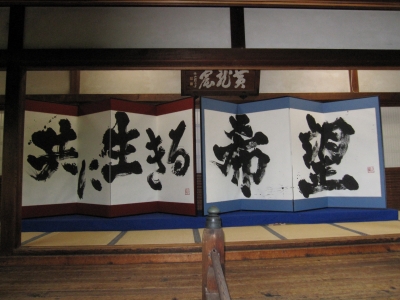 共に生きる
希望